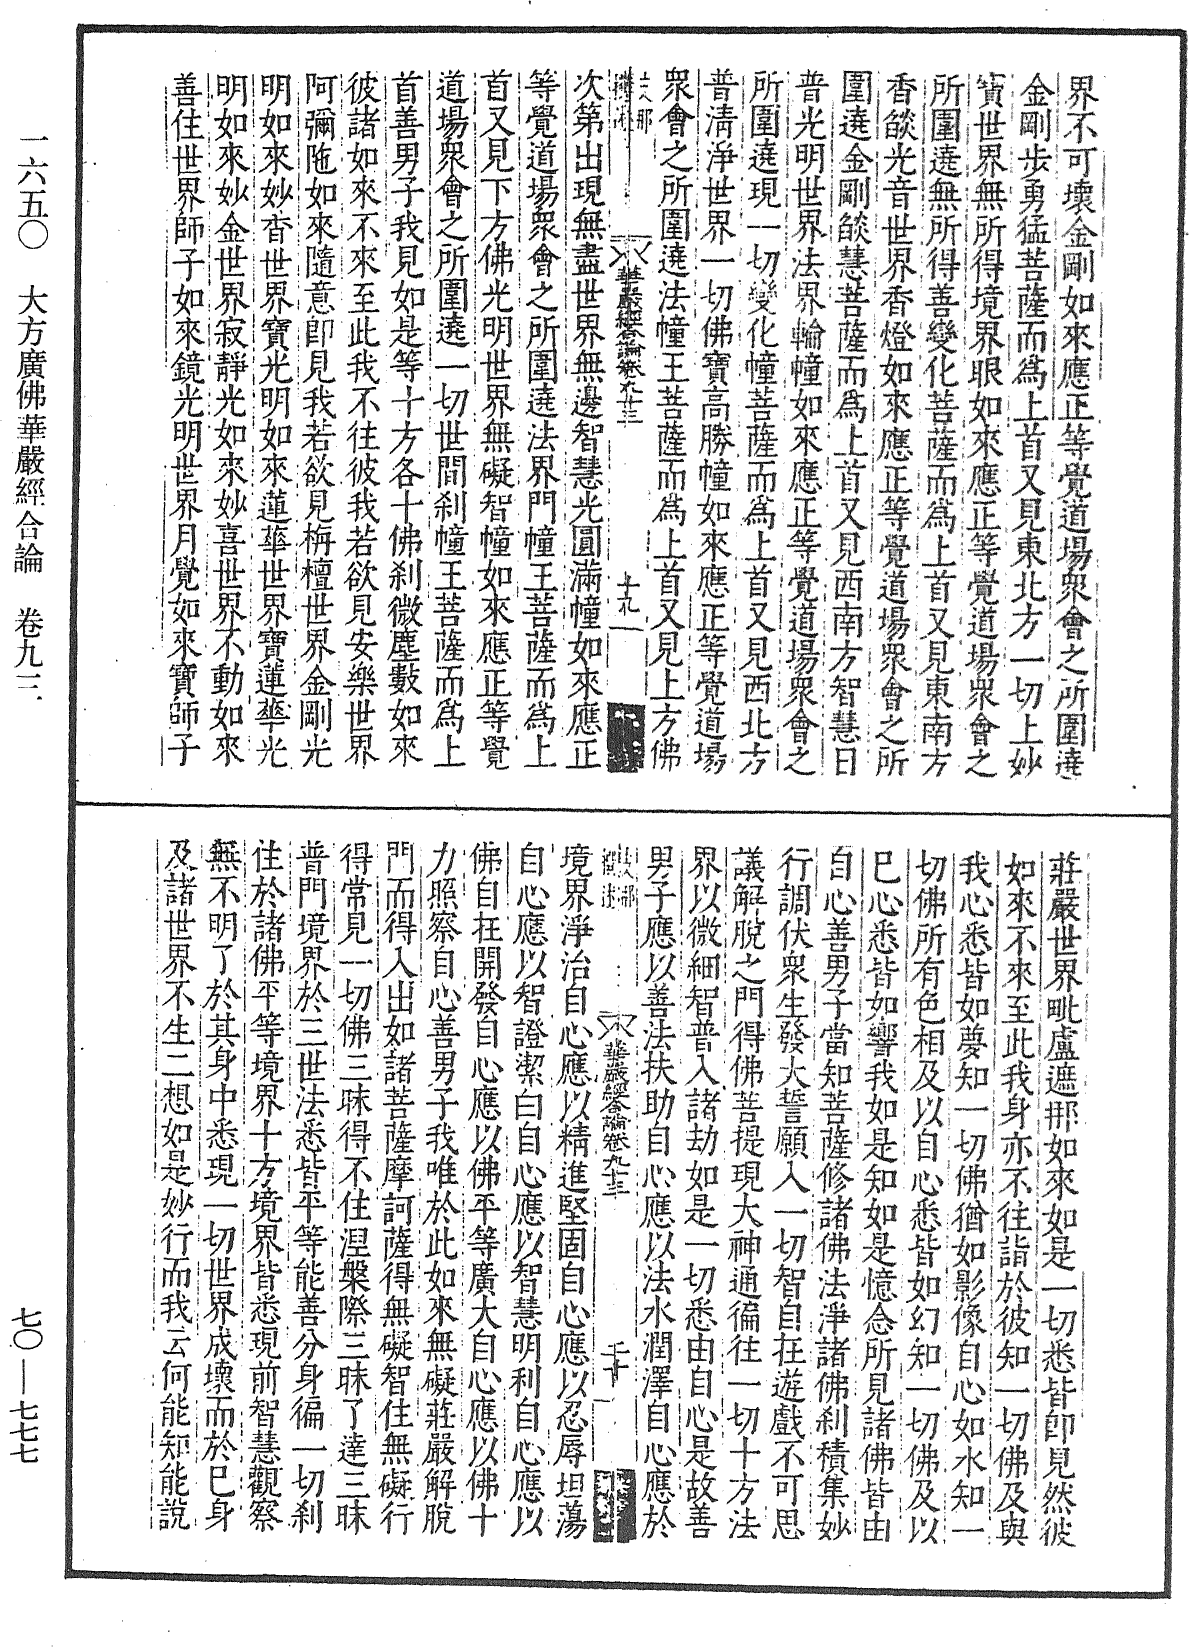 界不可壞金剛如來應正等覺道場眾會之所圍遶
金剛步勇猛菩薩而為上首又見東北方一切上妙
寶世界無所得境界眼如來應正等覺道場眾會之
所圍遶無所得善變化菩薩而為上首又見東南方
香燄光音世界香燈如來應正等覺道場眾會之所
圍遶金剛燄慧菩薩而為上首又見西南方智慧日
普光明世界法界輪幢如來應正等覺道場眾會之
所圍遶現一切變化幢菩薩而為上首又見西北方
普清淨世界一切佛寶高勝幢如來應正等覺道場
眾會之所圍遶法幢王菩薩而為上首又見上方佛
華嚴經合論卷九十三 十九
次第出現無盡世界無邊智慧光圓滿幢如來應正
等覺道場眾會之所圍遶法界門幢王菩薩而為上
首又見下方佛光明世界無礙智幢如來應正等覺
道場眾會之所圍遶一切世間剎幢王菩薩而為上
首善男子我見如是等十方各十佛剎微塵數如來
彼諸如來不來至此我不往彼我若欲見安樂世界
阿彌陁如來隨意即見我若欲見栴檀世界金剛光
明如來妙香世界寶光明如來蓮華世界寶蓮華光
明如來妙金世界寂靜光如來妙喜世界不動如來
善住世界師子如來鏡光明世界月覺如來寶師子
莊嚴世界毗盧遮那如來如是一切悉皆即見然彼
如來不來至此我身亦不往詣於彼知一切佛及與
我心悉皆如夢知一切佛猶如影像自心如水知一
切佛所有色相及以自心悉皆如幻知一切佛及以
已心悉皆如響我如是知如是憶念所見諸佛皆由
自心善男子當知菩薩修諸佛法淨諸佛剎積集妙
行調伏眾生發大誓願入一切智自在遊戲不可思
議解脫之門得佛菩提現大神通徧往一切十方法
界以微細智普入諸劫如是一切悉由自心是故善
男子應以善法扶助自心應以法水潤澤自心應於
華嚴經合論卷九十三 二十
境界淨治自心應以精進堅固自心應以忍辱坦蕩
自心應以智證潔白自心應以智慧明利自心應以
佛自在開發自心應以佛平等廣大自心應以佛十
力照察自心善男子我唯於此如來無礙莊嚴解脫
門而得入出如諸菩薩摩訶薩得無礙智住無礙行
得常見一切佛三昧得不住涅槃際三昧了達三昧
普門境界於三世法悉皆平等能善分身徧一切剎
住於諸佛平等境界十方境界皆悉現前智慧觀察
無不明了於其身中悉現一切世界成壞而於巳身
及諸世界不生二想如是妙行而我云何能知能說
一六五〇 大方廣佛華嚴經合論 卷九三
七〇—七七七